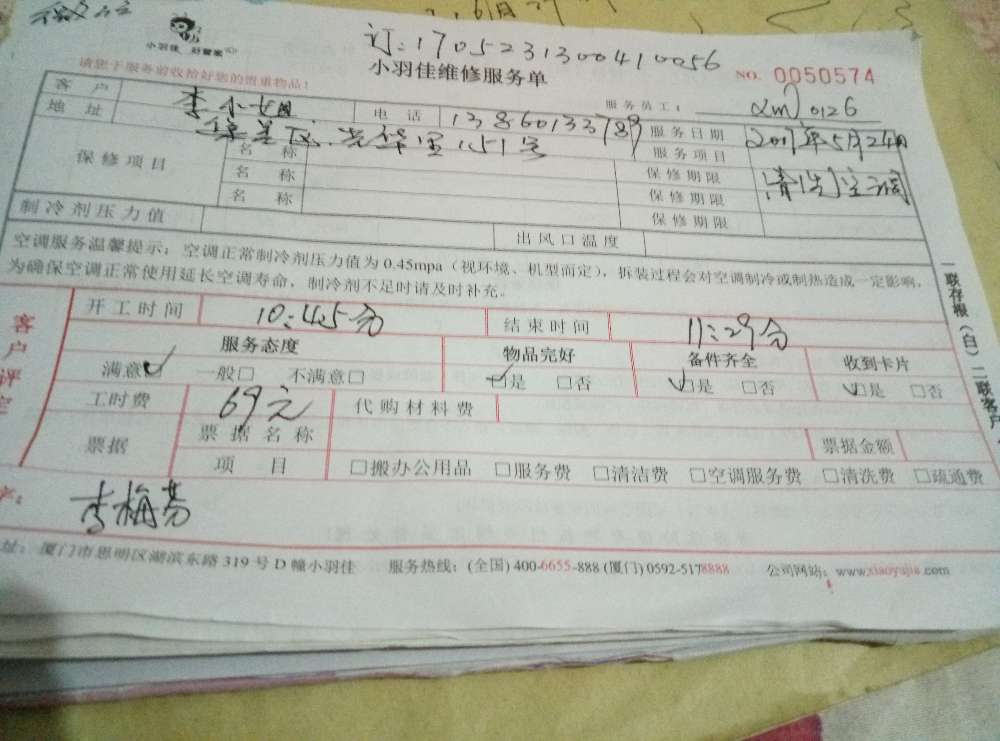 微信
小羽佳 好管家
订:170523130041 0056
小羽佳维修服务单
NO. 0050574
请您于服务前收拾好您的贵重物品!
服务员工: xm 0126
客户 李小姐 电话 13860133789 服务日期 2017年5月24日
地址 集美区.光华里151号 服务项目 清洗空调
保修项目 名称 保修期限
名称 保修期限
名称 保修期限
制冷剂压力值 出风口温度
空调服务温馨提示:空调正常制冷剂压力值为0.45mpa(视环境、机型而定),拆装过程会对空调制冷或制热造成一定影响,
为确保空调正常使用延长空调寿命,制冷剂不足时请及时补充。
客户评定
开工时间 10:45分 结束时间 11:29分
服务态度 物品完好 备件齐全 收到卡片
满意☑ 一般□ 不满意□ ☑是 □否 ☑是 □否 ☑是 □否
工时费 69元 代购材料费
票据 票据名称 票据金额
项目 □搬办公用品 □服务费 □清洁费 □空调服务费 □清洗费 □疏通费
李梅芬
址:厦门市思明区湖滨东路319号D幢小羽佳 服务热线:(全国)400-6655-888(厦门)0592-5178888 公司网站:www.xiaoyujia.com
一联存根(白)二联客户